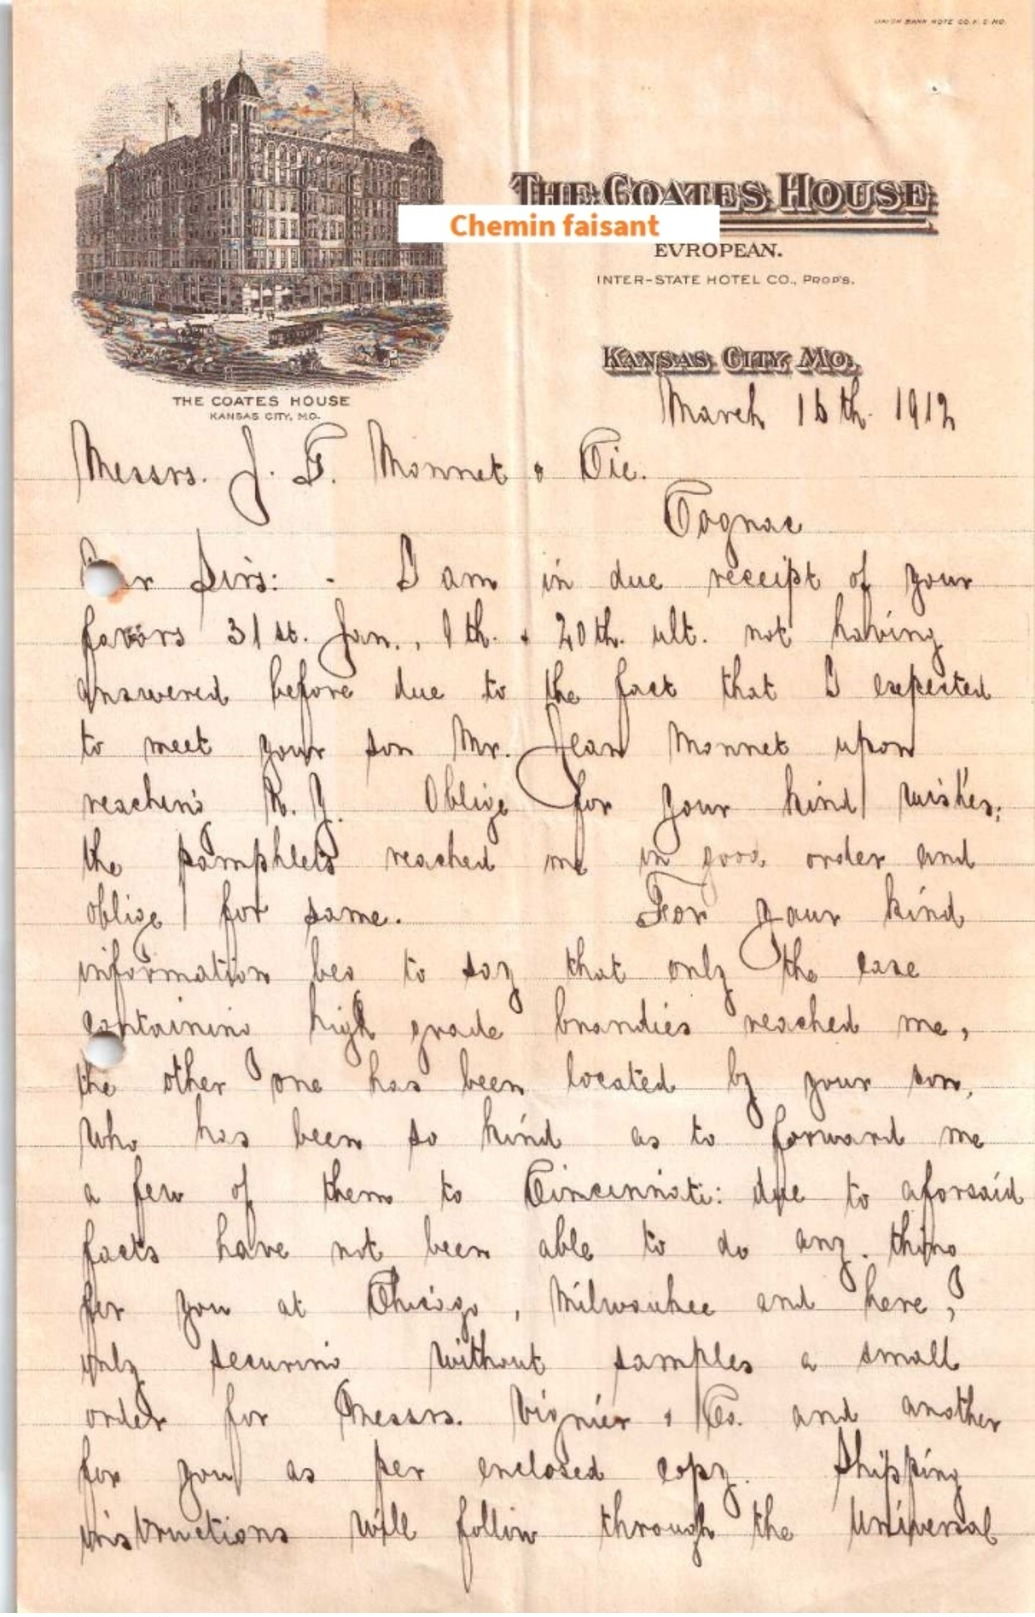 UNION BANK NOTE CO. K. C. MO.
THE COATES HOUSE
Chemin faisant
EVROPEAN.
INTER-STATE HOTEL CO., PROP'S.
KANSAS CITY, MO.
THE COATES HOUSE
KANSAS CITY, MO.
March 16th. 1912
Messrs. J. G. Monnet & Cie.
Cognac
Dear Sirs: - I am in due receipt of your
favors 31st. Jan., 9th. & 20th. ult. not having
answered before due to the fact that I expected
to meet your son Mr. Jean Monnet upon
reaching N. Y. Oblige for your kind wishes,
the pamphlets reached me in good order and
oblige for same. For your kind
information beg to say that only the case
containing high grade brandies reached me,
the other one has been located by your son,
who has been so kind as to forward me
a few of them to Cincinnati: due to aforsaid
facts have not been able to do any thing
for you at Chicago, Milwaukee and here,
only securing without samples a small
order for Messrs. Vignier & Co. and another
for you as per enclosed copy. Shipping
instructions will follow through the Universal